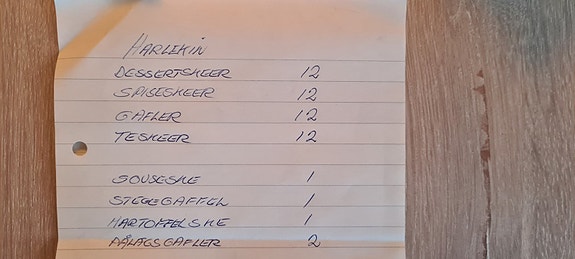 HARLEKIN
DESSERTSKEER 12
SPISESKEER 12
GAFLER 12
TESKEER 12
SOVSESKE 1
STEGEGAFFEL 1
KARTOFFELSKE 1
PÅLÆGSGAFLER 2